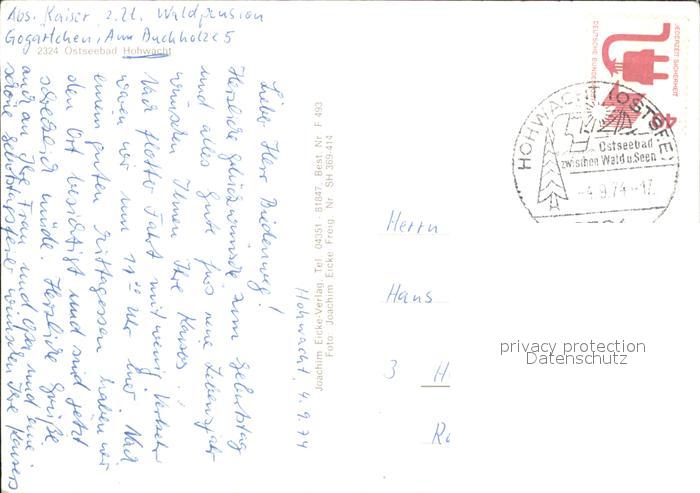 Abs. Kaiser z. Zt. Waldpension
Gogärtchen, Am Buchholz 5
2324 Ostseebad Hohwacht
Hohwacht, 4.9.74
Lieber Herr Biederweg!
Herzliche Glückwünsche zum Geburtstag
und alles Gute fürs neue Lebensjahr
wünschen Ihnen Ihre Kaisers.
Nach flotter Fahrt mit wenig Verkehr
waren wir um 11 00 Uhr hier. Nach
einem guten Mittagessen haben wir
den Ort besichtigt und sind jetzt
schrecklich müde. Herzliche Grüße
auch an Ihre Frau und Opa und eine
schöne Geburtstagsfeier wünschen Ihre Kaisers
Joachim Eicke-Verlag, Tel. 04351 81847, Best. Nr. F 493
Foto: Joachim Eicke Freig. Nr. SH 369-414
JEDERZEIT SICHERHEIT
DEUTSCHE BUNDESPOST
40
HOHWACHT (OSTSEE)
Ostseebad
zwischen Wald u. Seen
-4.9.74-17
Herrn
Hans
3 H
privacy protection
Datenschutz